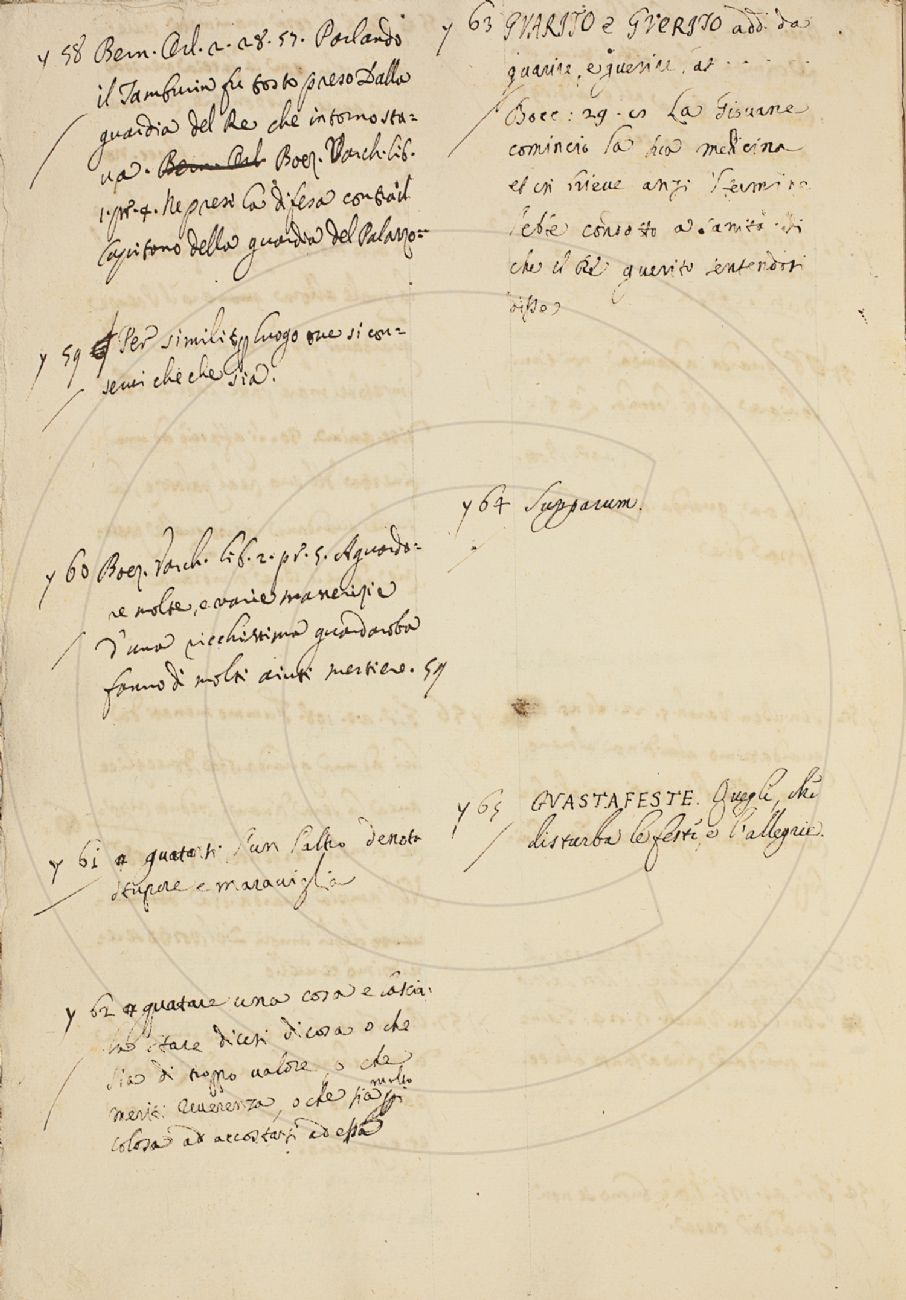 y 58 Bern. Orl. 2. 28. 57. Parlando
il Tamburin fu tosto preso Dalla
guardia del Re che intorno sta=
va. Bern. Orl. Boez. Varch. lib.
1. pr. 4. Ne presi la difesa contro il
Capitano della guardia del Palazzo=
y 59 Per similit luogo ove si con=
servi che che sia.
y 60 Boez. Varch. lib. 2. pr. 5. A guarda=
re molte, e varie masserizie
d'una ricchissima guardaroba
fanno di molti aiuti mestiere. 59
y 61 guatarsi l'un l'altro denota
stupore e maraviglia
y 62 guatare una cosa e lascia-
la stare dicesi di cosa o che
sia di troppo valore, o che
meriti reverenza, o che sia molto
colosa ad accostarsi ad essa
y 63 GVARITO e GVERITO add. da
guarire, e guerire, at
Bocc: 29. La Giovane
cominciò la sua medicina
et in brieve anzi l termine
l'ebbe condotto a sanità. di
che il Re guerito sentendosi
disse
y 64 Supparum.
y 65 GVASTAFESTE. Quegli, che
disturba le feste, e l'allegrie.